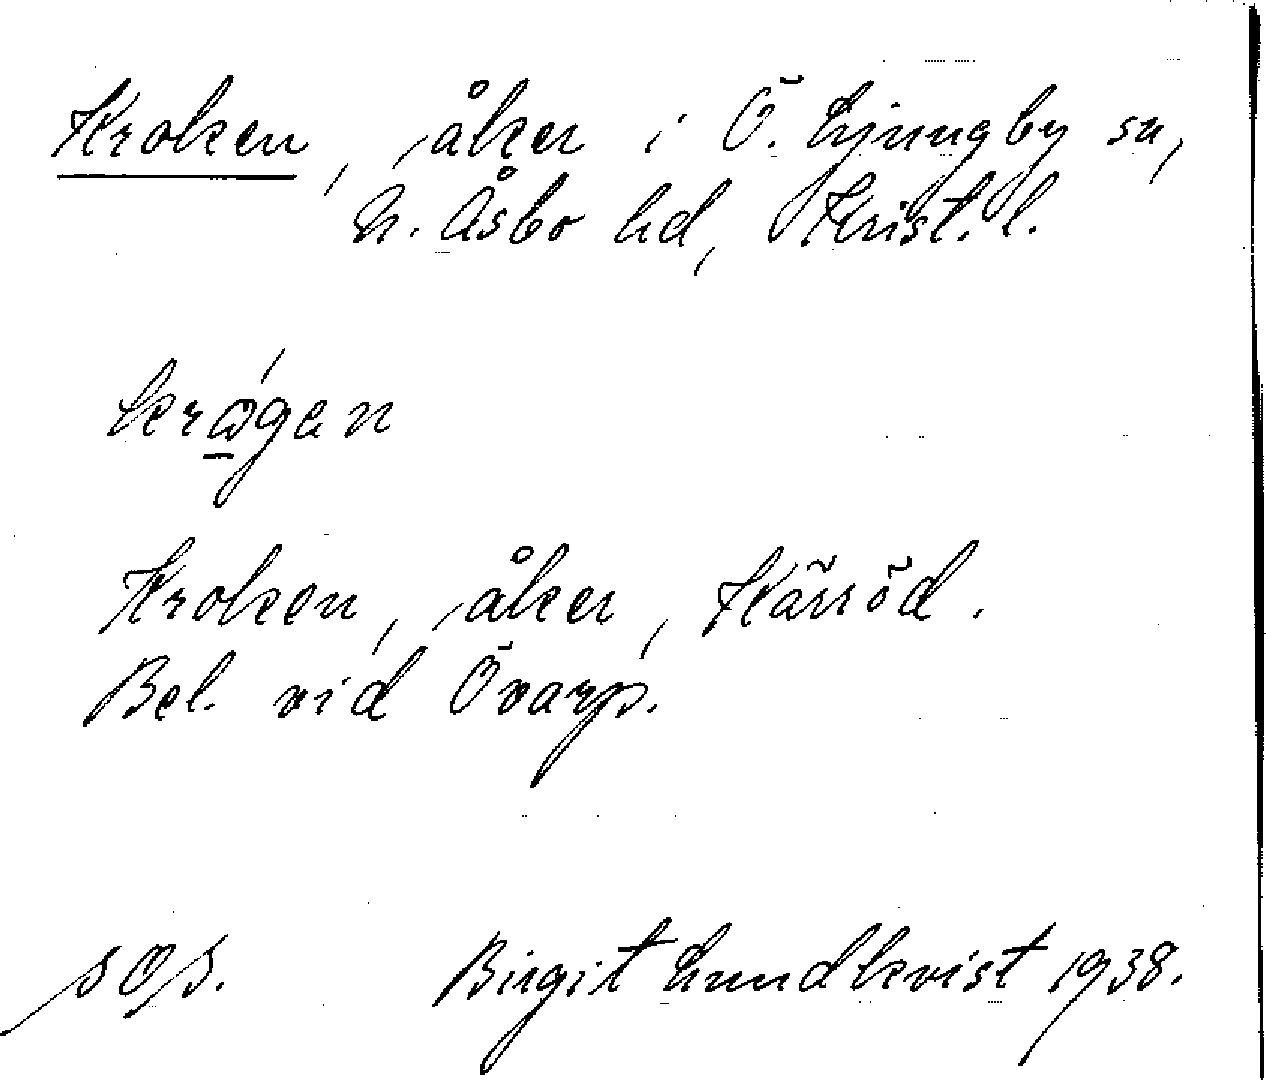 Kroken, åker i Ö. Ljungby sn,
N. Åsbo hd, Krist. l.
Kroken, åker, Kärröd.
Bel. vid Övarp.
Birgit Lundkvist 1938.